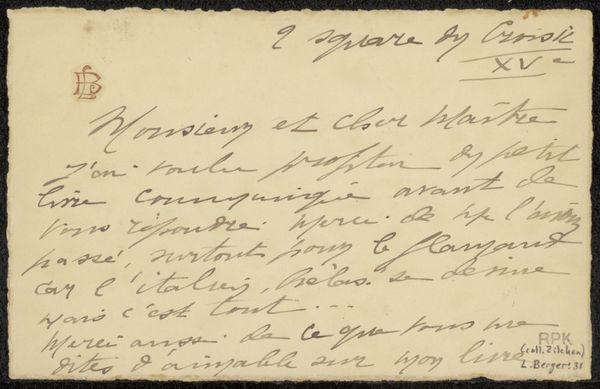 2 square du Croisic
XVe
LB
Monsieur et cher Maître
J'ai voulu profiter du petit
livre communiqué avant de
vous répondre. Merci de me l'avoir
passé, surtout pour le flamand
car l'italien, hélas. se devine
mais c'est tout...
Merci aussi de ce que vous me
dites d'aimable sur mon livre
RPK
(coll. Zilcken)
L. Berger: 31